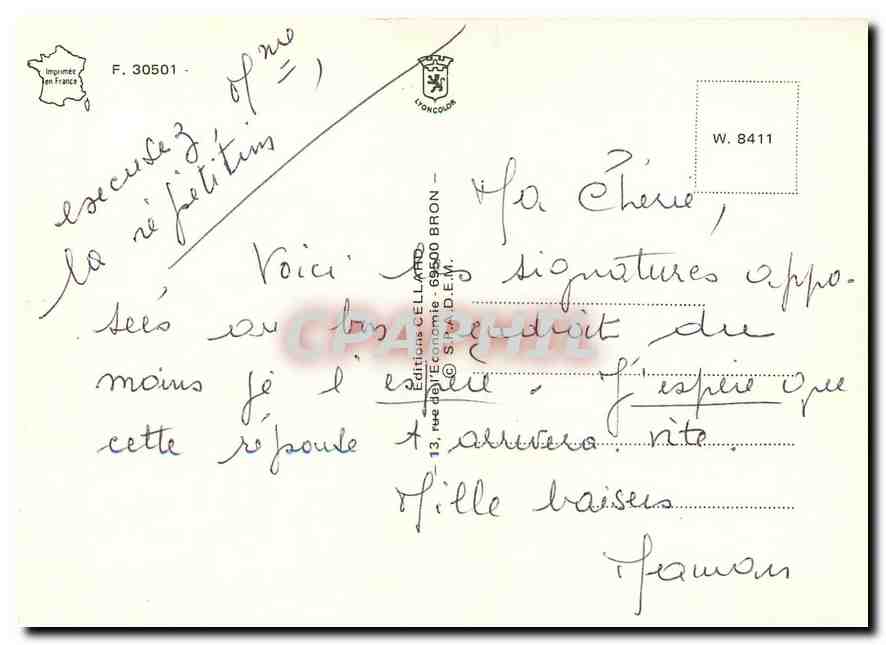 Imprimée
en France
F. 30501 -
LYONCOLOR
W. 8411
excusez, Mme,
la répétition
Ma Chérie,
Voici les signatures appo-
sées au bon endroit du
moins je l'espère. J'espère que
cette réponse t'arrivera vite.
Mille baisers
Maman
Editions CELLARD
13, rue de l'Economie - 69500 BRON -
© S.P.A.D.E.M.
CPAPHIL